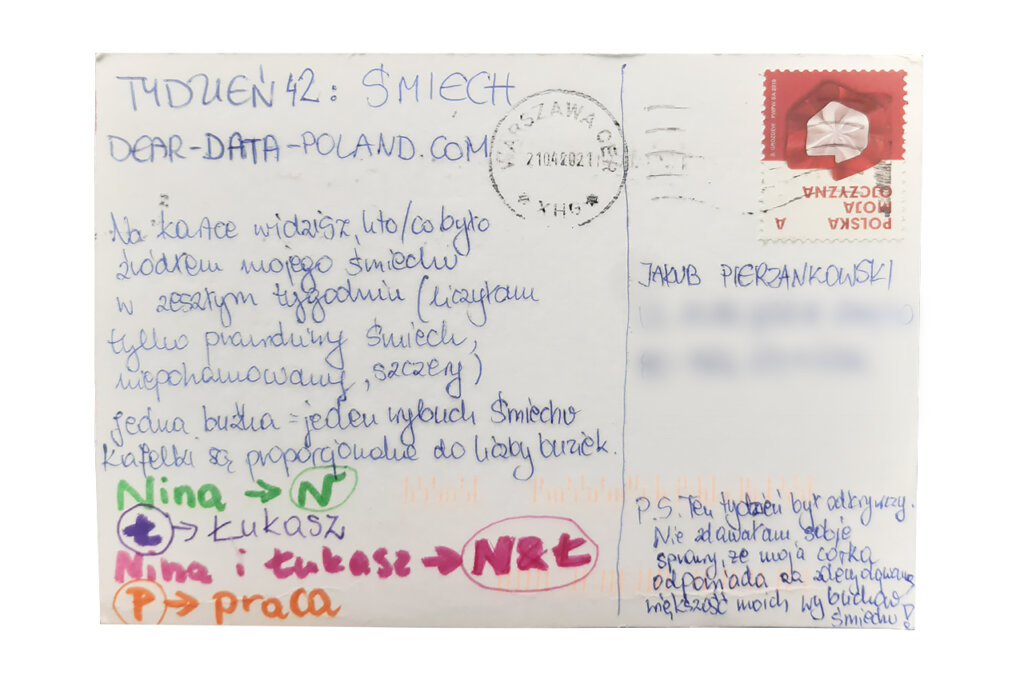 TYDZIEŃ 42: ŚMIECH
DEAR-DATA-POLAND.COM
Na kartce widzisz, kto/co było
źródłem mojego śmiechu
w zeszłym tygodniu (liczyłam
tylko prawdziwy śmiech,
niepohamowany, szczery)
Jedna buźka = jeden wybuch śmiechu
Kafelki są proporcjonalne do liczby buziek.
Nina → N
Ł → ŁUKASZ
Nina i Łukasz → N&Ł
P → praca
WARSZAWA CER
21042021
* YHG *
POLSKA
MOJA
OJCZYZNA
A
JAKUB PIERZANKOWSKI
P.S. Ten tydzień był odkrywczy.
Nie zdawałam sobie
sprawy, że moja córka
odpowiada za zdecydowaną
większość moich wybuchów
śmiechu!